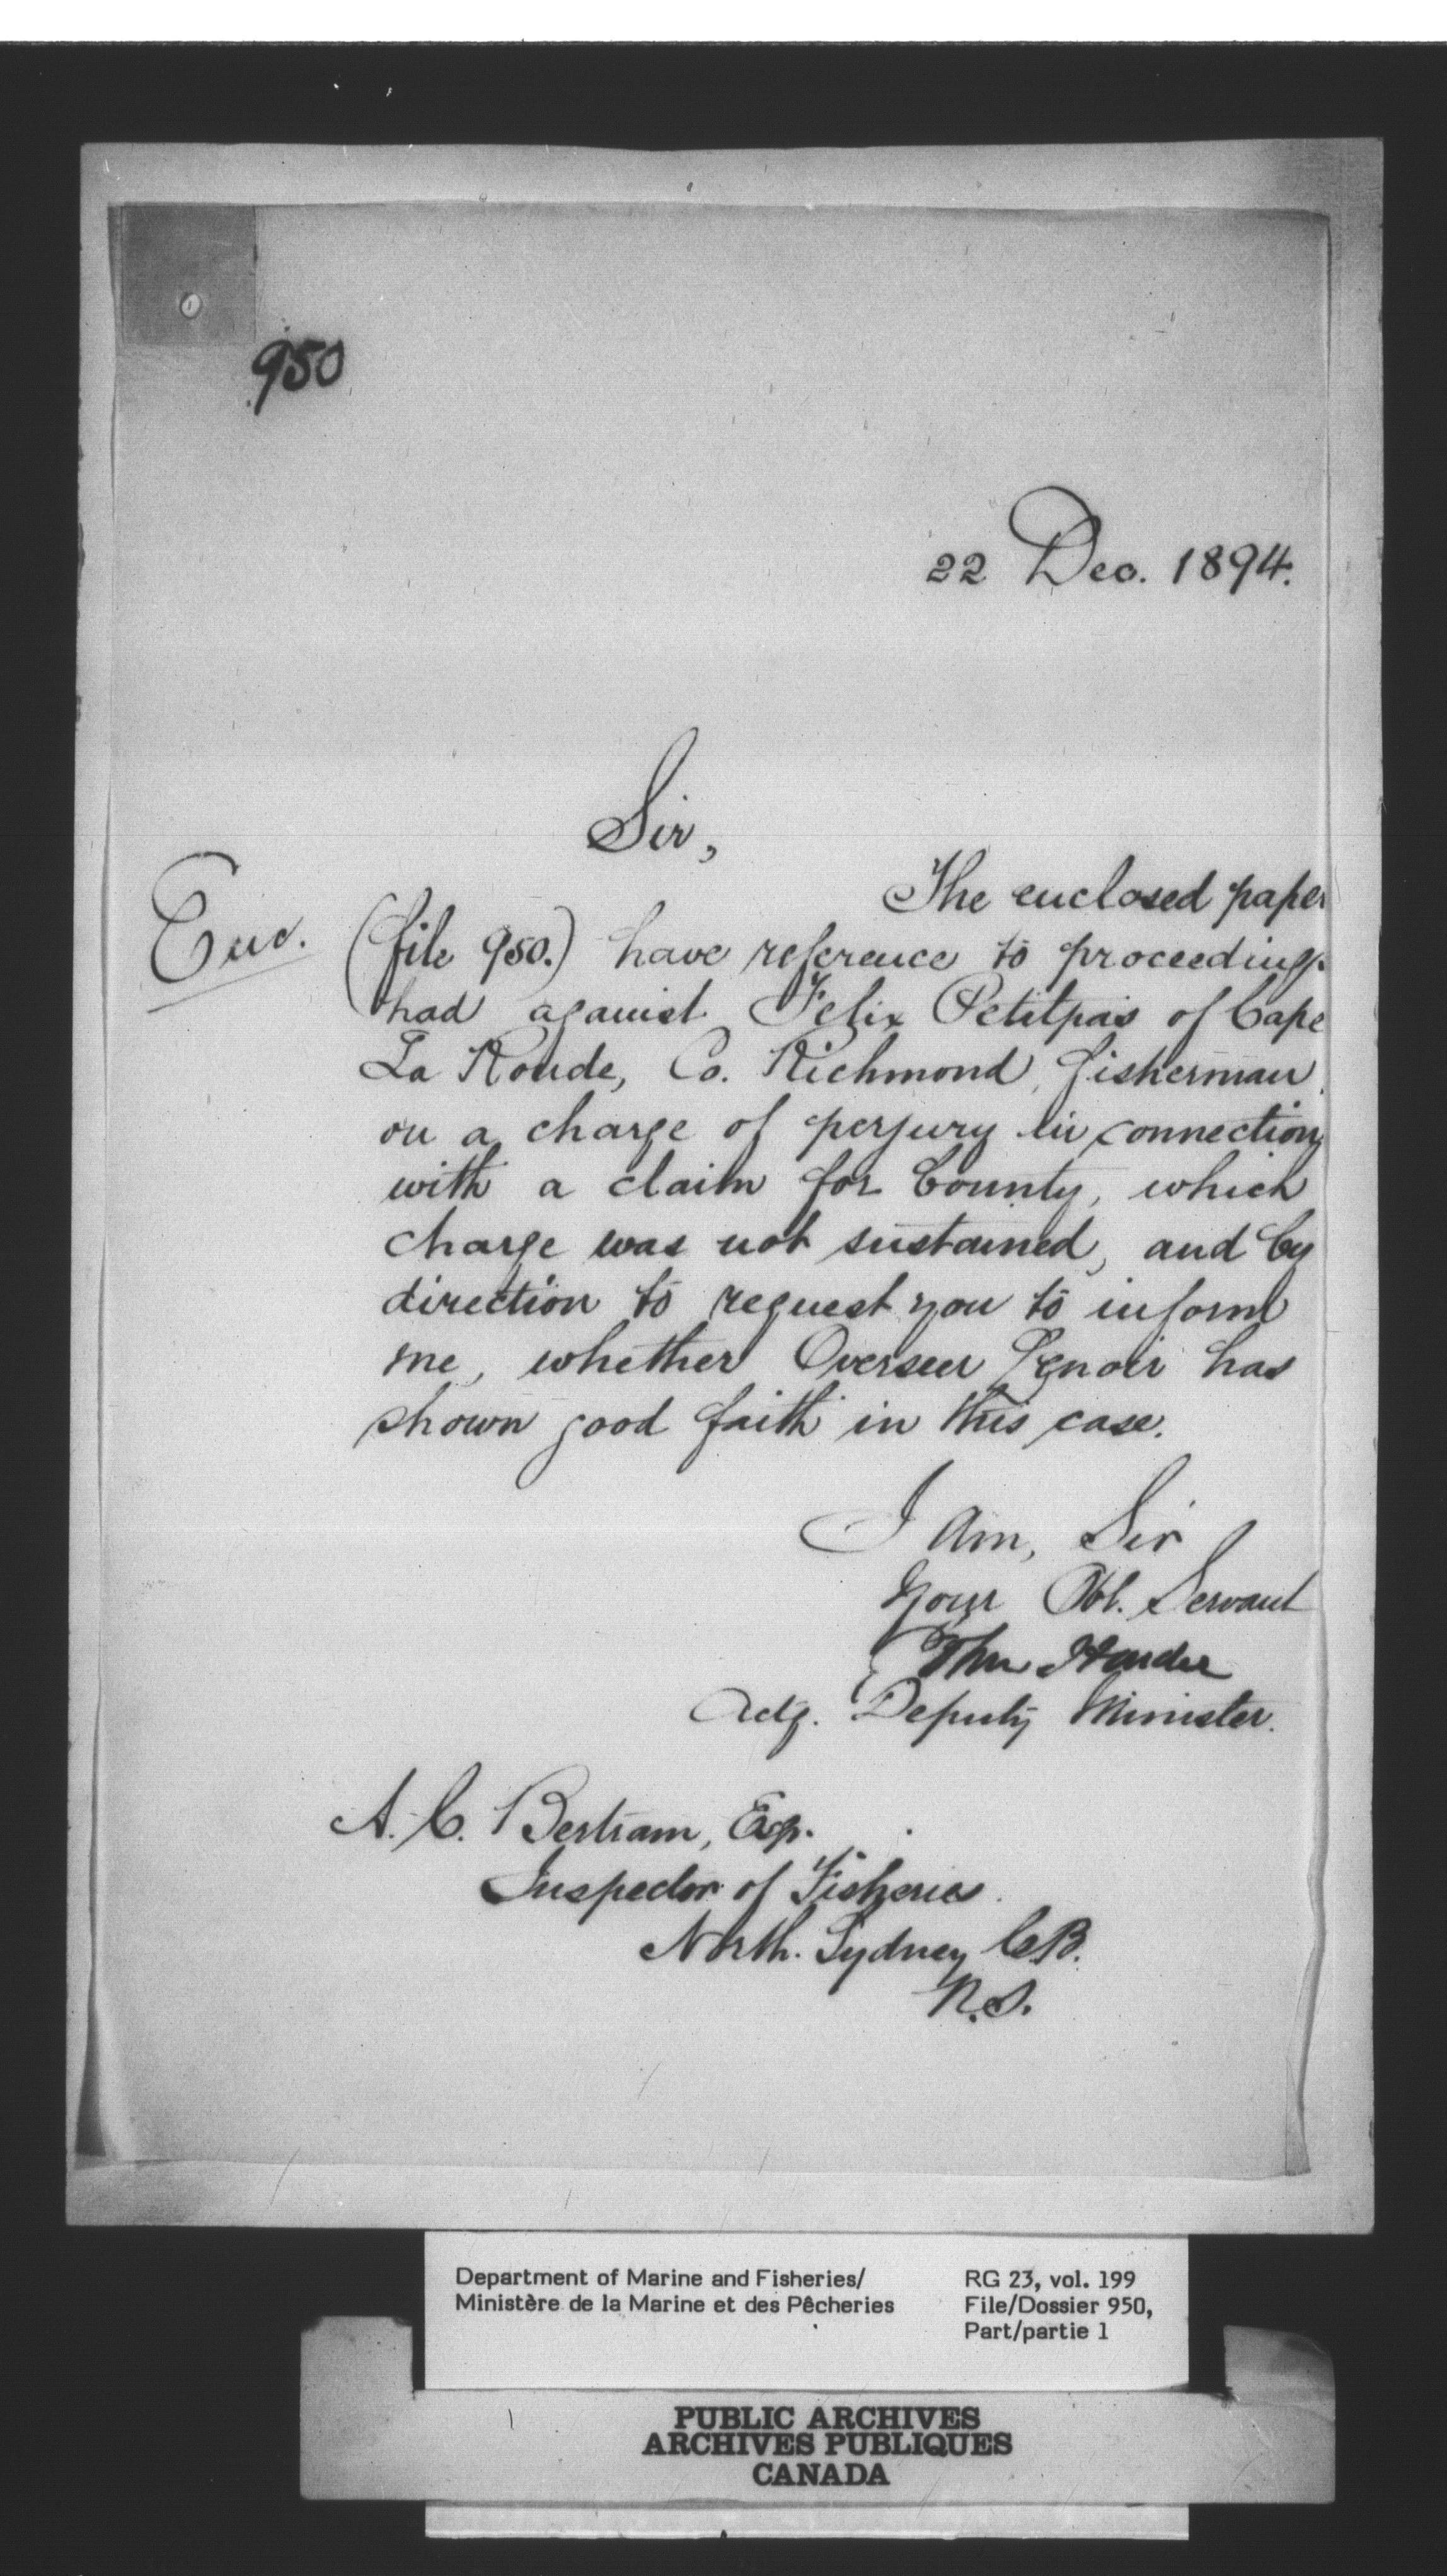 950
22 Dec. 1894.
Sir,
The enclosed paper
Enc.
(file 950.) have reference to proceedings
had against Felix Petitpas of Cape
La Ronde, Co. Richmond, fisherman
on a charge of perjury in connection
with a claim for bounty, which
charge was not sustained, and by
direction to request you to inform
me, whether Overseer Lenoir has
shown good faith in this case.
I am, Sir
Your Obt. Servant
John Hardie
Actg. Deputy Minister.
A. C. Bertram, Esq.
Inspector of Fisheries.
North. Sydney C.B.
N.S.
Department of Marine and Fisheries/
Ministère de la Marine et des Pêcheries
RG 23, vol. 199
File/Dossier 950,
Part/partie 1
PUBLIC ARCHIVES
ARCHIVES PUBLIQUES
CANADA